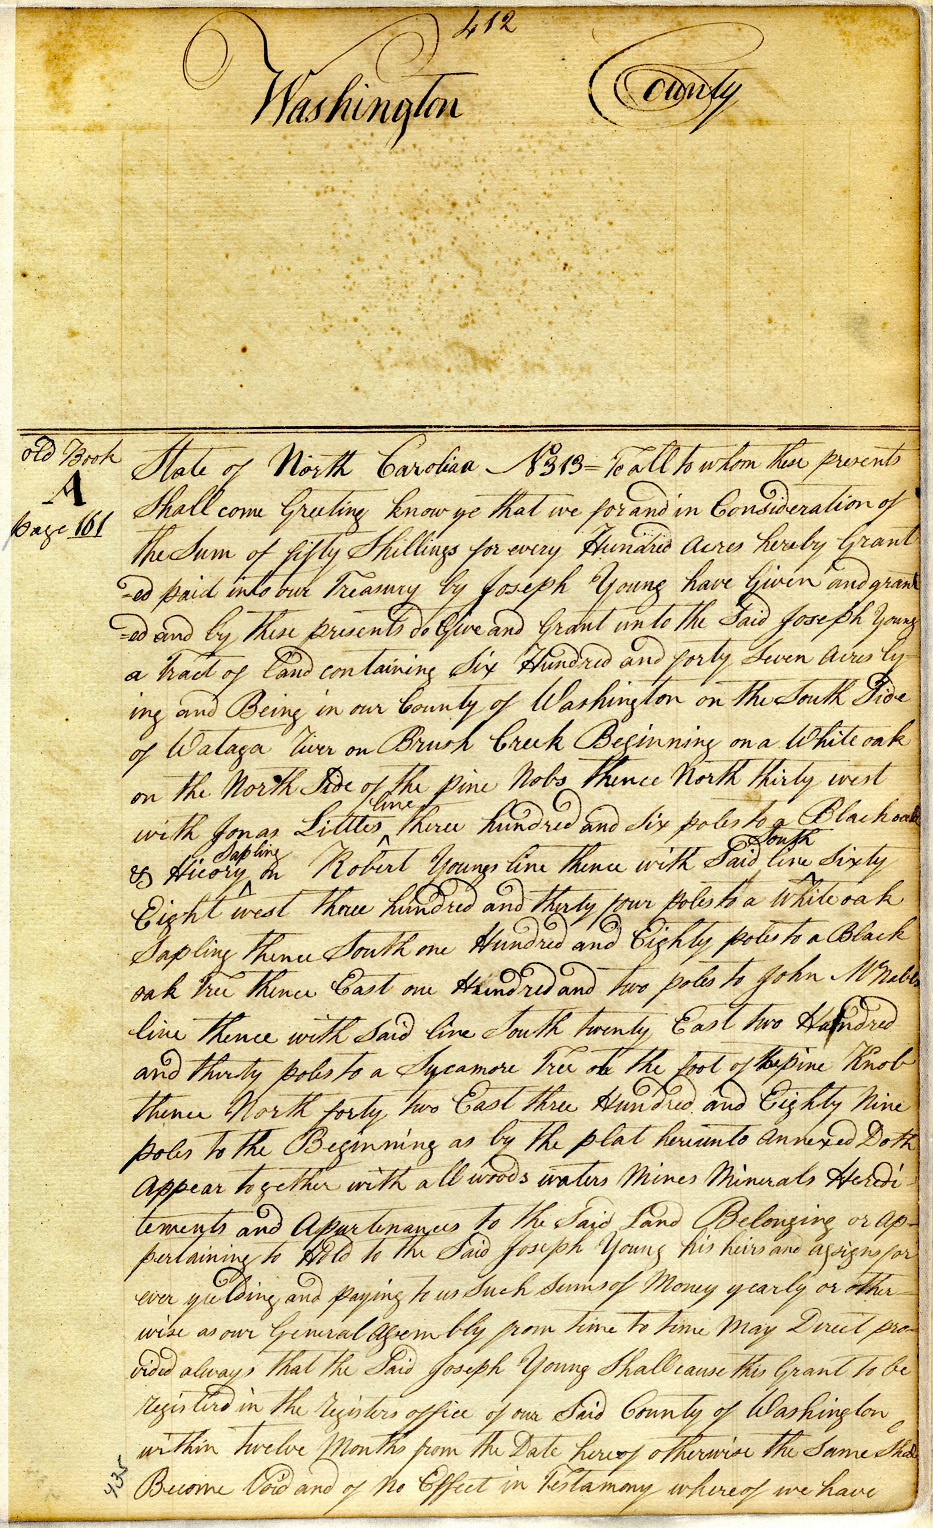 412
Washington County
old Book
A
page 161
State of North Carolina No 313 = To all to whom these presents
Shall come Greeting know ye that we for and in Consideration of
the Sum of fifty Shillings for every Hundred acres hereby Grant
=ed paid into our Treasury by Joseph Young have Given and grant
=ed and by these presents do Give and Grant unto the Said Joseph Young
a Tract of land containing Six Hundred and forty Seven acres ly-
ing and Being in our County of Washington on the South Side
of Wataga River on Brush Creek Beginning on a White oak
on the North Side of the pine Nobs thence North thirty west
with Jonas Littles line three hundred and six poles to a Black oak
& Hicory Sapling on Robert Youngs line thence with Said line South Sixty
Eight west three hundred and thirty four poles to a white oak
Sapling thence South one Hundred and Eighty poles to a Black
oak Tree thence East one Hundred and two poles to John McNabbs
line thence with Said line South twenty East two Hundred
and thirty poles to a Sycamore Tree at the foot of the pine Knob
thence North forty two East three Hundred and Eighty Nine
poles to the Beginning as by the plat hereunto annexed Doth
appear together with all woods waters Mines Minerals Heredi-
tements and Apurtenances to the Said Land Belonging or ap-
pertaining to Hold to the Said Joseph Young his heirs and assigns for
ever yielding and paying to us Such sums of Money yearly or other-
wise as our General Assembly from time to time May Direct pro-
vided always that the Said Joseph Young Shall cause this Grant to be
registerd in the registers office of our Said County of Washington
within twelve Months from the Date hereof otherwise the Same Shall
Become Void and of No Effect in Testamony whereof we have
435